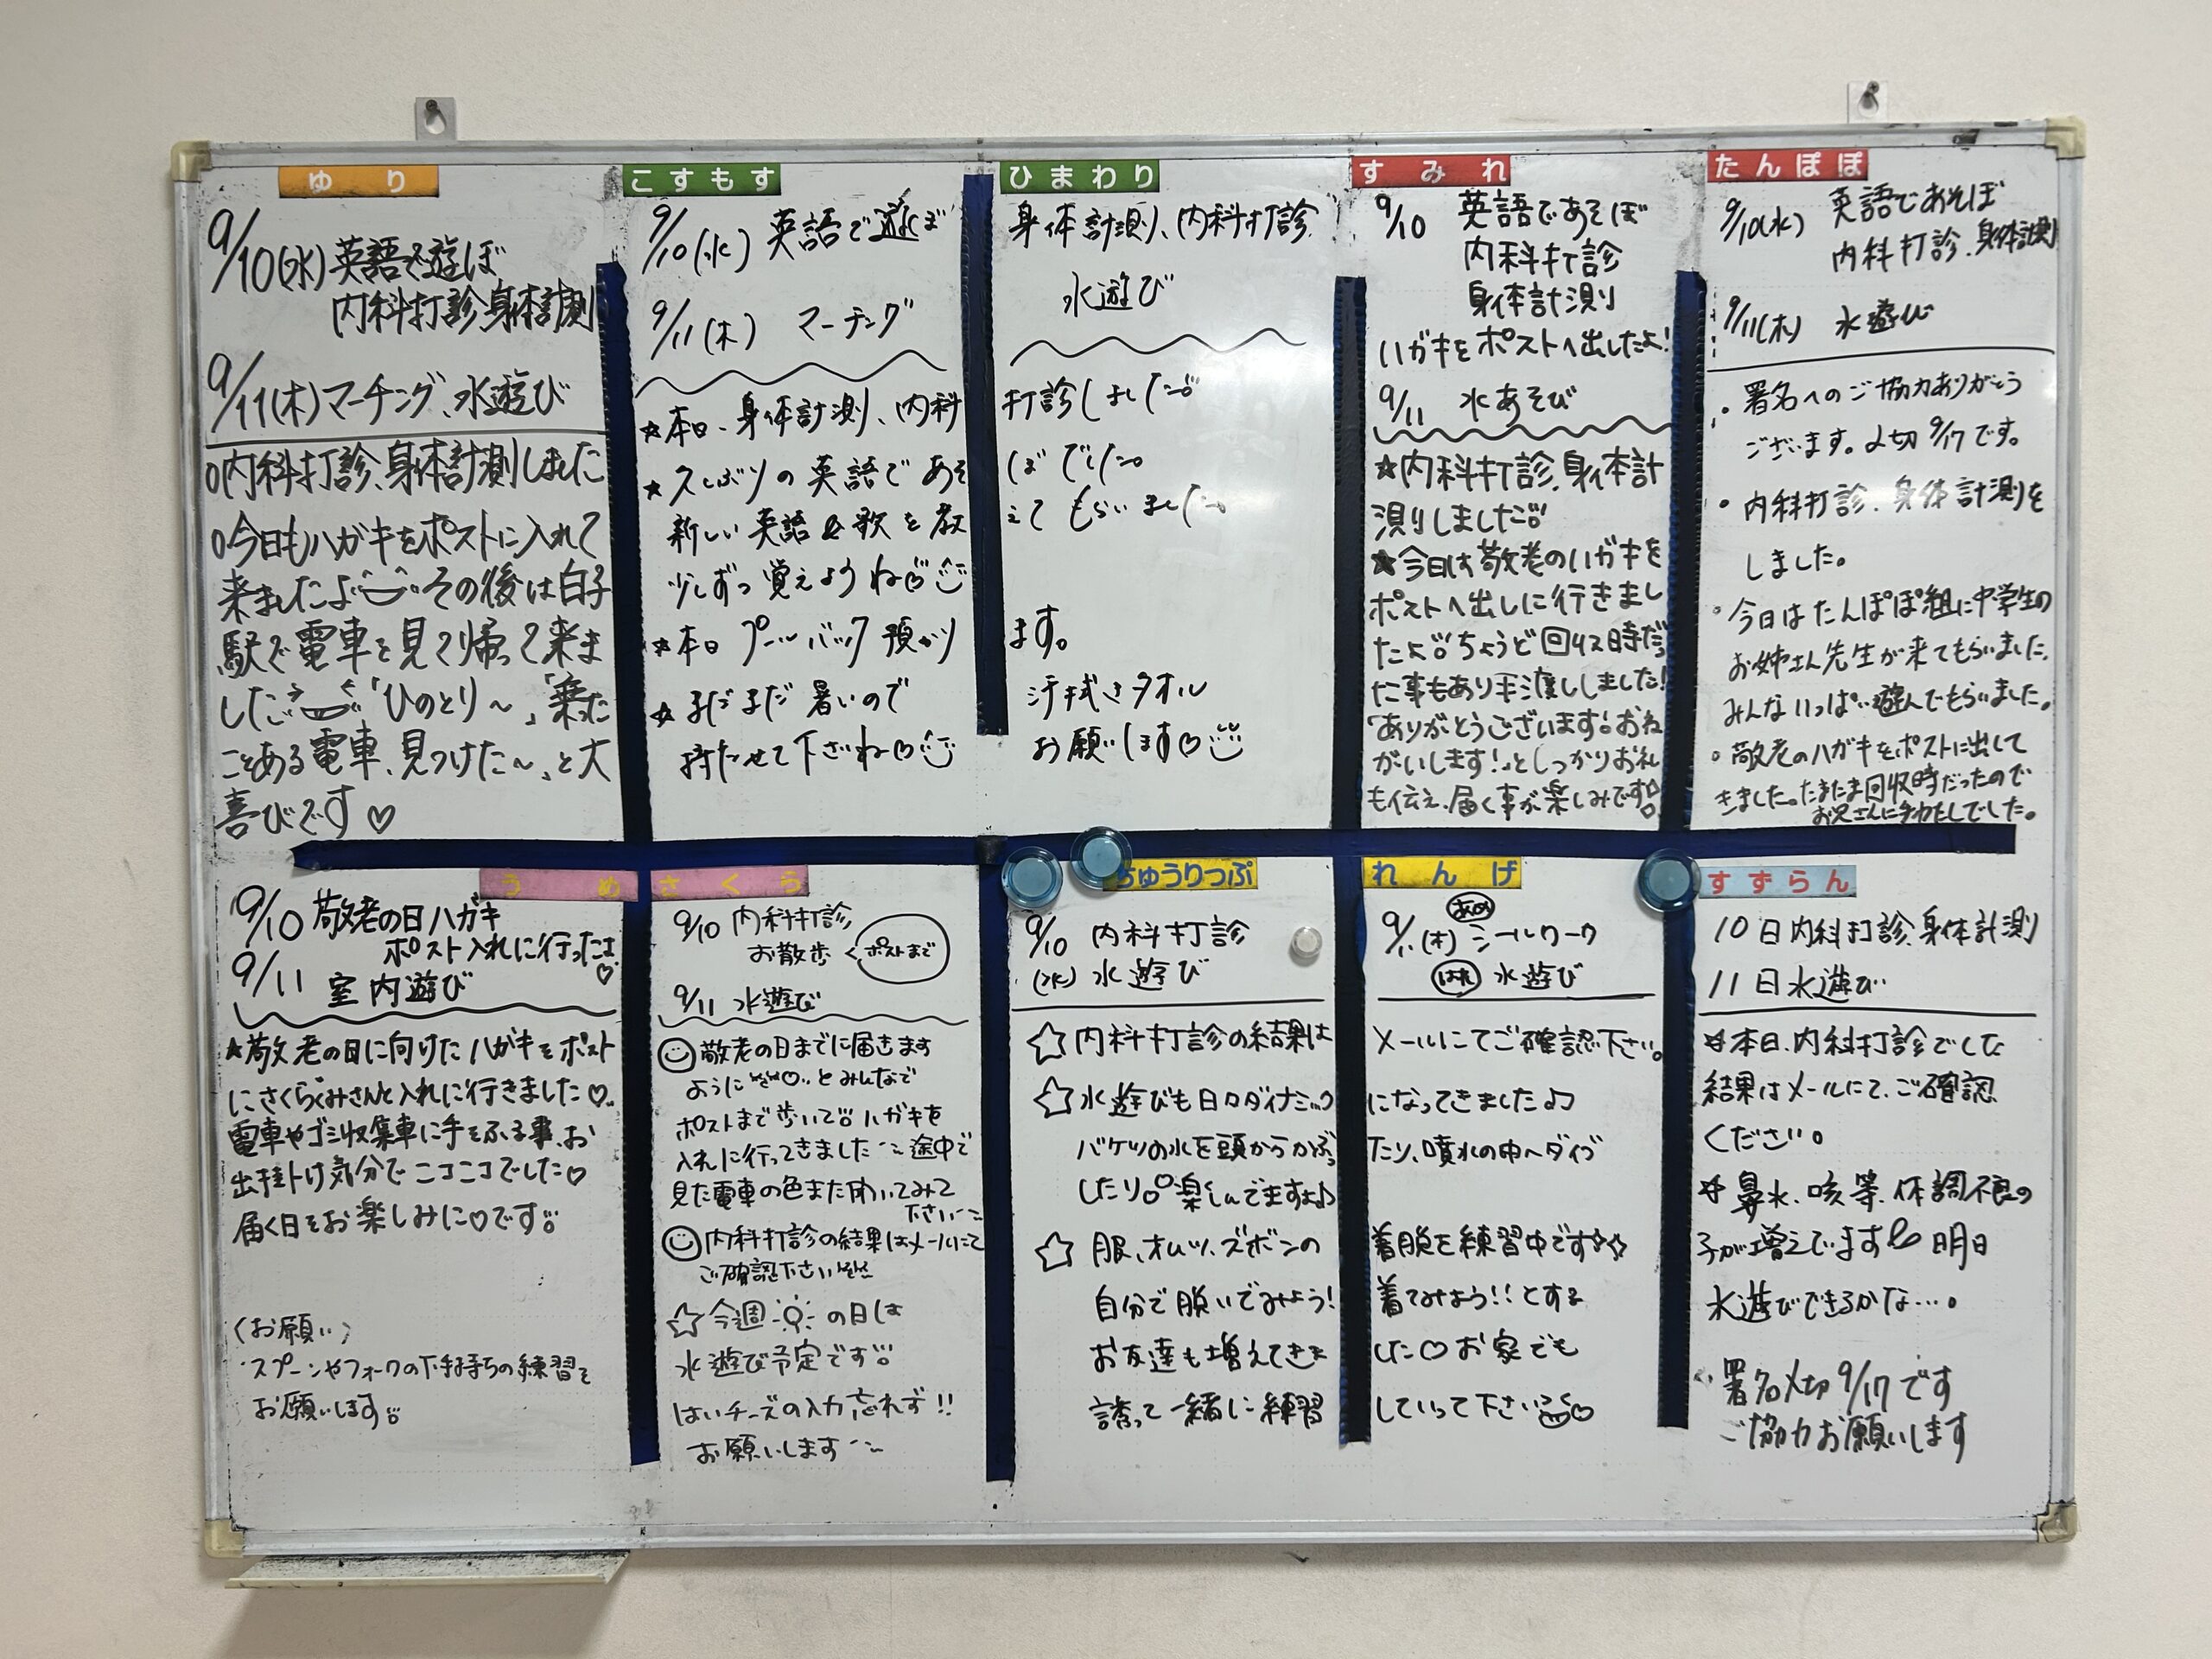 ゆり
9/10(水)英語で遊ぼ
内科打診、身体計測
9/11(木)マーチング、水遊び
○内科打診、身体計測しました
○今日もハガキをポストに入れて
来ましたよ その後は白子
駅で電車を見て帰って来ま
した 「ひのとり〜」「乗った
ことある電車、見つけた〜」と大
喜びです♡
こすもす
ひまわり
9/10(水) 英語で遊ぼ 身体計測、内科打診
9/11(木) マーチング 水遊び
★本日、身体計測、内科打診しました
★久しぶりの英語であそぼでした
新しい英語&歌を教えてもらいました
少しずつ覚えようね♡
★本日プールバック預かります。
★まだまだ暑いので 汗拭きタオル
持たせて下さいね♡ お願いします♡
すみれ
9/10 英語であそぼ
内科打診
身体計測
ハガキをポストへ出したよ!
9/11 水あそび
★内科打診、身体計
測しました
★今日は敬老のハガキを
ポストへ出しに行きまし
たよ ちょうど回収時だっ
た事もあり手渡ししました!
「ありがとうございます!おね
がいします!」としっかりお礼
も伝え、届く事が楽しみです
たんぽぽ
9/10(水) 英語であそぼ
内科打診、身体計測
9/11(木) 水遊び
・署名へのご協力ありがとう
ございます。〆切9/17です。
・内科打診、身体計測を
しました。
・今日はたんぽぽ組に中学生の
お姉さん先生が来てもらいました。
みんないっぱい遊んでもらいました。
・敬老のハガキをポストに出して
きました。たまたま回収時だったので
お兄さんに手わたしでした。
うめ
9/10 敬老の日ハガキ
ポスト入れに行ったよ♡
9/11 室内遊び
★敬老の日に向けたハガキをポスト
にさくらぐみさんと入れに行きました♡
電車やゴミ収集車に手をふる事、お
出掛け気分でニコニコでした♡
届く日をお楽しみに♡です
〈お願い〉
・スプーンやフォークの下手持ちの練習を
お願いします
さくら
9/10 内科打診
お散歩 ポストまで
9/11 水遊び
敬老の日までに届きます
ように とみんなで
ポストまで歩いて ハガキを
入れに行ってきました 途中で
見た電車の色また聞いてみて
下さい
内科打診の結果はメールにて
ご確認下さい
☆今週 の日は
水遊び予定です
はいチーズの入力忘れず!!
お願いします
ちゅうりっぷ
れんげ
9/10(水) 内科打診
水遊び
9/11(木) あめ シールワーク
はれ 水遊び
☆内科打診の結果はメールにてご確認下さい。
☆水遊びも日々ダイナミックになってきました♪
バケツの水を頭からかぶったり、噴水の中へダイブ
したり 楽しんでますよ♪
☆服、オムツ、ズボンの着脱を練習中です☆☆
自分で脱いでみよう!着てみよう!!とする
お友達も増えてきました♡お家でも
誘って一緒に練習していって下さい♡
すずらん
10日内科打診、身体計測
11日水遊び
☆本日、内科打診でした
結果はメールにて、ご確認
ください。
☆鼻水、咳等、体調不良の
子が増えてます 明日
水遊びできるかな…。
署名〆切9/17です
ご協力お願いします